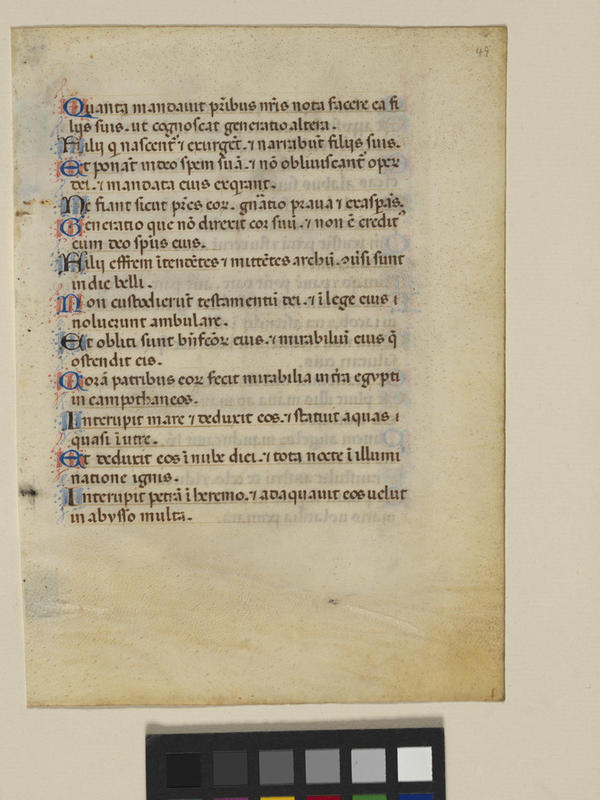 49
Quanta mandauit pr̄ibus nr̄is nota facere ea fi
lijs suis. ut cognoscat generatio altera.
Filij q nascent᷑ ⁊ exurgēt. ⁊ narrabūt filijs suis.
Et ponāt in deo spem suā. ⁊ nō obliuiscant᷑ oper
dei. ⁊ mandata eius exqrant.
Ne fiant sicut pr̄es eor. gn̄atio praua ⁊ exaspās.
Generatio que nō direxit cor suū. ⁊ non ē credit᷒
cum deo sp̄us eius.
Filij effrem ītendētes ⁊ mittētes archū. ɔuersi sunt
in die belli.
Non custodierūt testamentū dei. ⁊ ī lege eius i
noluerunt ambulare.
Et obliti sunt bn̄fcōꝝ eius. ⁊ mirabiliū eius q̄
ostendit eis.
Corā patribus eor fecit mirabilia in t̄ra egypti
in campothaneos.
Interupit mare ⁊ deduxit eos. ⁊ statuit aquas i
quasi ī utre.
Et deduxit eos ī nube diei. ⁊ tota nocte ī illumi
natione ignis.
Interupit petrā ī heremo. ⁊ adaquauit eos uelut
in abysso multa.